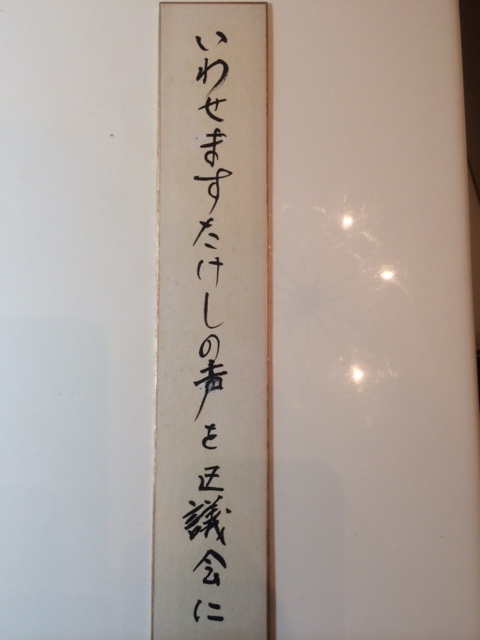 いわせますたけしの声を区議会に